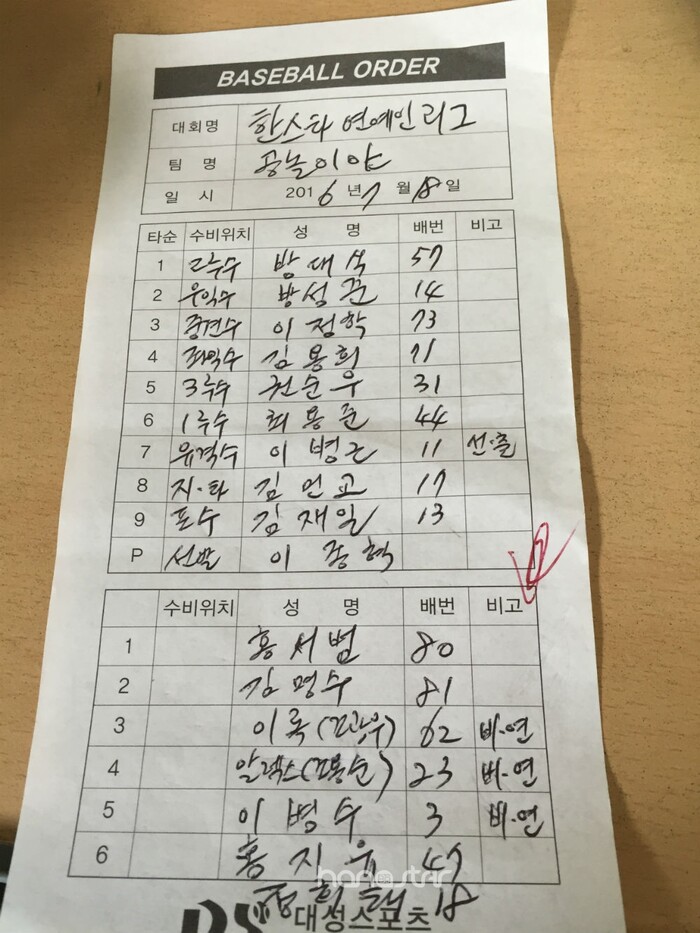 BASEBALL ORDER
대회명 한스타 연예인 리그
팀 명 공놀이야
일 시 2016년 7월 18일
타순 수비위치 성 명 배번 비고
1 2루수 방대식 57
2 우익수 방성준 14
3 중견수 이정학 73
4 좌익수 김용희 71
5 3루수 권순우 31
6 1루수 최용준 44
7 유격수 이병근 11 선·출
8 지·타 김언교 17
9 포수 김재일 13
P 선발 이종혁
수비위치 성 명 배번 비고
1 홍서범 80
2 김명수 81
3 이록 62 비·연
4 알렉스 23 비·연
5 이병수 3 비·연
6 홍지유 47
18
대성스포츠